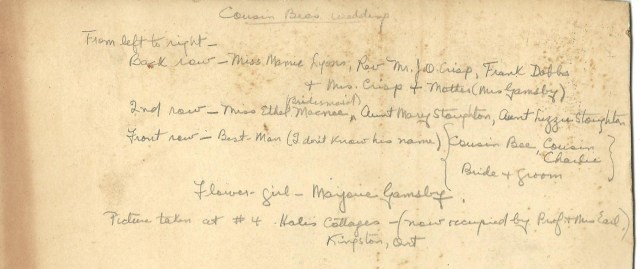 Cousin Bea's wedding
From left to right —
Back row — Miss Mamie Lyons, Rev Mr. J.D. Crisp, Frank Dobbs
+ Mrs. Crisp + Mother (Mrs Gamsby)
2nd row — Miss Ethel Macnee (Bridesmaid), Aunt Mary Stoughton, Aunt Lizzie Stoughton
Front row — Best-Man (I don't know his name) { Cousin Bee, Cousin
Charlie
Bride + groom }
Flower-girl — Marjorie Gamsby.
Picture taken at # 4 Hales Cottages — (now occupied by Prof + Mrs Earl.)
Kingston, Ont